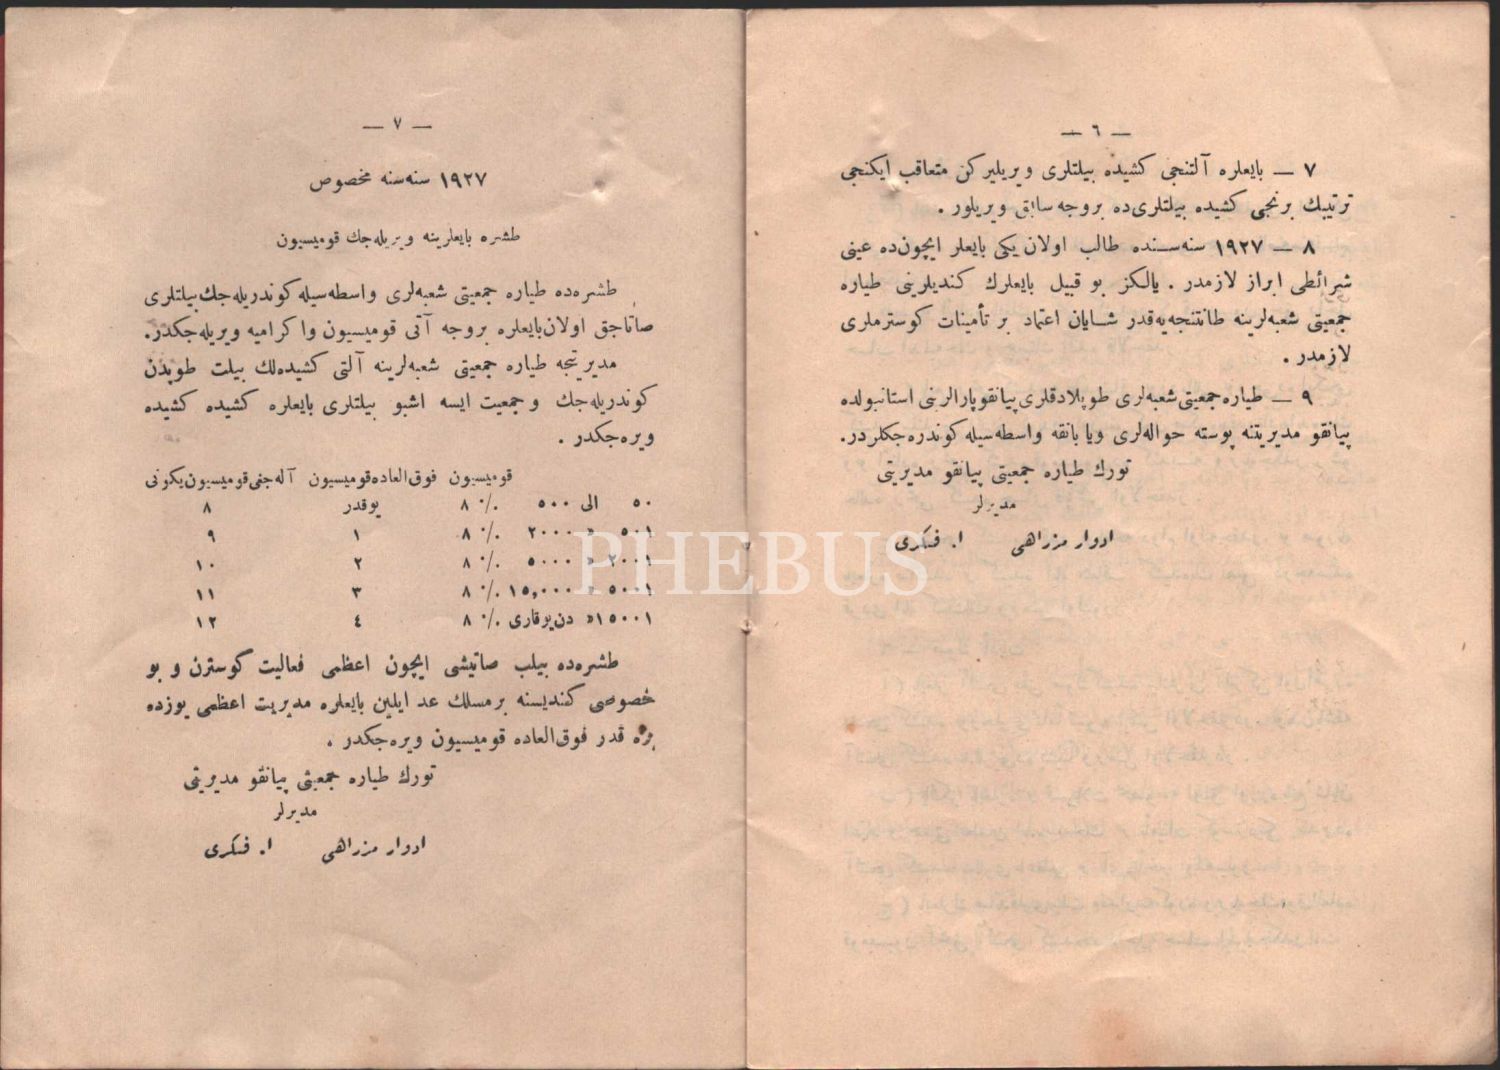 — ٦ —
٧ — بایعلره آلتنجی كشیده بیلتلری ویریلیركن متعاقب ایكنجی
ترتیبك برنجی كشیده بیلتلری‌ده بروجه سابق ویریلور .
٨ — ١٩٢٧ سنه‌سنده طالب اولان یكی بایعلر ایچون‌ده عینی
شرائطی ابراز لازمدر . یالكز بو قبیل بایعلرك كندیلرینی طیاره
جمعیتی شعبه‌لرینه طانتنجه‌یه‌قدر شایان اعتماد بر تأمینات كوسترملری
لازمدر .
٩ — طیاره جمعیتی شعبه‌لری طوپلادقلری پیانقوپارالرنی استانبولده
پیانقو مدیریتنه پوسته حواله‌لری ویا بانقه واسطه‌سیله كوندره‌جكلردر.
تورك طیاره جمعیتی پیانقو مدیریتی
مدیرلر
ادوار مزراهی ا. فكری
— ٧ —
١٩٢٧ سنه‌سنه مخصوص
طشره بایعلرینه ویریله‌جك قومیسیون
طشره‌ده طیاره جمعیتی شعبه‌لری واسطه‌سیله كوندریله‌جك بیلتلری
صاتاجق اولان بایعلره بروجه آتی قومیسیون و اكرامیه ویریله‌جكدر.
مدیریتجه طیاره جمعیتی شعبه‌لرینه آلتی كشیده‌لك بیلت طوپدن
كوندریله‌جك و جمعیت ایسه اشبو بیلتلری بایعلره كشیده كشیده
ویره‌جكدر .
قومیسیون فوق‌العاده قومیسیون آله‌جغی قومیسیون یكونی
٥٠ الی ٥٠٠ ٪ ٨ یوقدر ٨
٥٠١ » ٢٠٠٠ ٪ ٨ ١ ٩
٢٠٠١ » ٥٠٠٠ ٪ ٨ ٢ ١٠
٥٠٠١ » ١٥,٠٠٠ ٪ ٨ ٣ ١١
١٥٠٠١ » دن یوقاری ٪ ٨ ٤ ١٢
طشره‌ده بیلب صاتیشی ایچون اعظمی فعالیت كوسترن و بو
خصوصی كندیسنه برمسلك عد ایلین بایعلره مدیریت اعظمی یوزده
بره قدر فوق‌العاده قومیسیون ویره‌جكدر .
تورك طیاره جمعیتی پیانقو مدیریتی
مدیرلر
ادوار مزراهی ا. فكری
PHEBUS